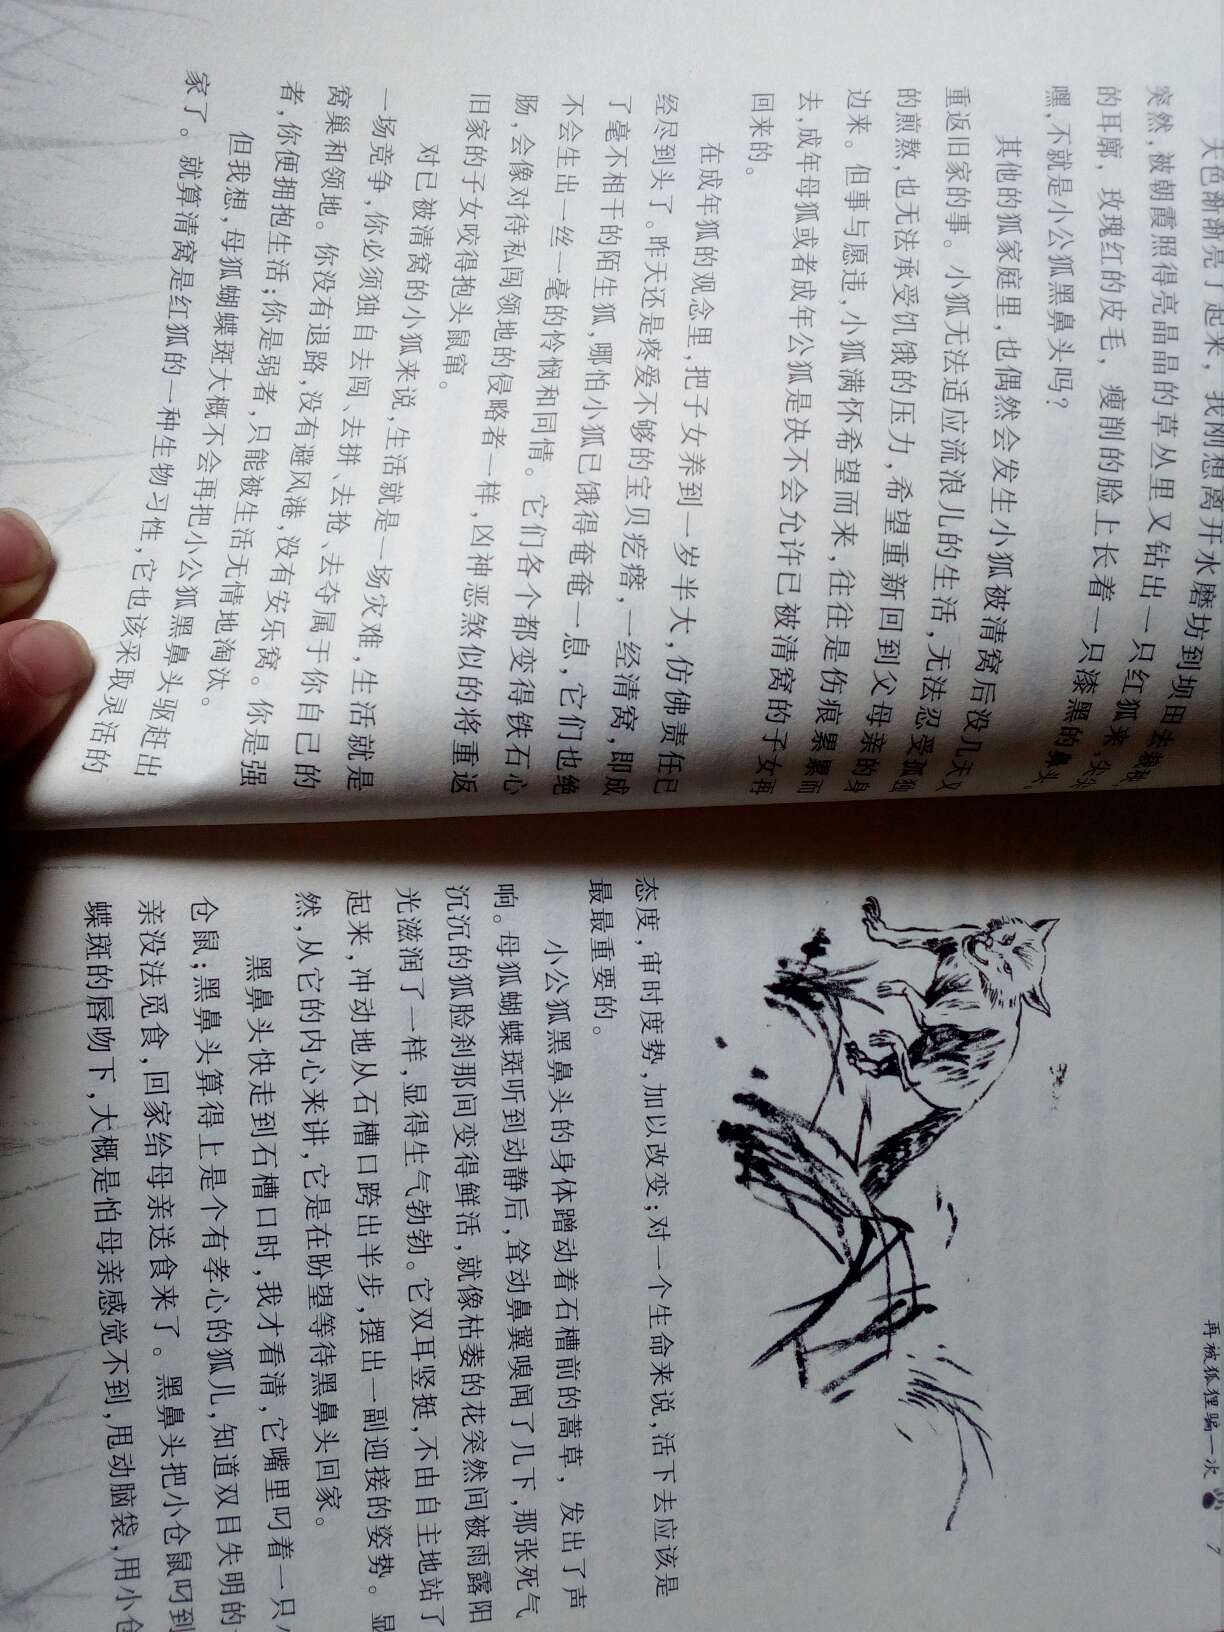 天色渐渐亮了起来，我刚想离开水磨坊到坝田去
突然，被朝霞照得亮晶晶的草丛里又钻出一只红狐来，尖尖
的耳廓，玫瑰红的皮毛，瘦削的脸上长着一只漆黑的鼻头，
嘿，不就是小公狐黑鼻头吗？
其他的狐家庭里，也偶然会发生小狐被清窝后没几天又
重返旧家的事。小狐无法适应流浪儿的生活，无法忍受孤独
的煎熬，也无法承受饥饿的压力，希望重新回到父母亲的身
边来。但事与愿违，小狐满怀希望而来，往往是伤痕累累而
去，成年母狐或者成年公狐是决不会允许已被清窝的子女再
回来的。
在成年狐的观念里，把子女养到一岁半大，仿佛责任已
经尽到头了。昨天还是疼爱不够的宝贝疙瘩，一经清窝，即成
了毫不相干的陌生狐，哪怕小狐已饿得奄奄一息，它们也绝
不会生出一丝一毫的怜悯和同情。它们各个都变得铁石心
肠，会像对待私闯领地的侵略者一样，凶神恶煞似的将重返
旧家的子女咬得抱头鼠窜。
对已被清窝的小狐来说，生活就是一场灾难，生活就是
一场竞争，你必须独自去闯、去拼、去抢、去夺属于你自己的
窝巢和领地。你没有退路，没有避风港，没有安乐窝。你是强
者，你便拥抱生活；你是弱者，只能被生活无情地淘汰。
但我想，母狐蝴蝶斑大概不会再把小公狐黑鼻头驱赶出
家了。就算清窝是红狐的一种生物习性，它也该采取灵活的
再被狐狸骗一次 7
态度，审时度势，加以改变；对一个生命来说，活下去应该是
最最重要的。
小公狐黑鼻头的身体蹭动着石槽前的蒿草，发出了声
响。母狐蝴蝶斑听到动静后，耸动鼻翼嗅闻了几下，那张死气
沉沉的狐脸刹那间变得鲜活，就像枯萎的花突然间被雨露阳
光滋润了一样，显得生气勃勃。它双耳竖挺，不由自主地站了
起来，冲动地从石槽口跨出半步，摆出一副迎接的姿势。显
然，从它的内心来讲，它是在盼望等待黑鼻头回家。
黑鼻头快走到石槽口时，我才看清，它嘴里叼着一只小
仓鼠；黑鼻头算得上是个有孝心的狐儿，知道双目失明的
亲没法觅食，回家给母亲送食来了。黑鼻头把小仓鼠叼到
蝶斑的唇吻下，大概是怕母亲感觉不到，甩动脑袋，用小仓